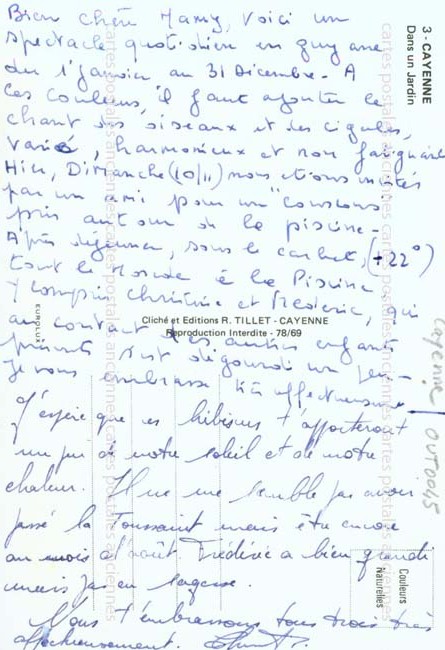 Bien chère Mamy, voici un
spectacle quotidien en guyane
du 1er Janvier au 31 Décembre - A
ces couleurs, il faut ajouter le
chant des oiseaux et des cigales,
varié, harmonieux et non fatiguant
Hier, Dimanche (10/11) nous étions invités
par un ami pour un "couscous"
pris autour de la piscine -
Après déjeuner, sous le carbet, (+22°)
tout le Monde à la Piscine
Y compris Christine et Frédéric, qui
au contact des autres enfants
présents s'est dégourdi un peu -
Je vous embrasse très affectueusement
J'espère que ces hibiscus t'apporteront
un peu de notre soleil et de notre
chaleur. Il ne me semble pas avoir
passé la Toussaint mais être encore
au mois d'août Frédéric a bien grandi
mais pas en sagesse.
Nous t'embrassons tous trois très
affectueusement.
3 - CAYENNE
Dans un Jardin
Cliché et Editions R. TILLET - CAYENNE
Reproduction Interdite - 78/69
EUROLUX
Couleurs
Naturelles
Cayenne
OUT0045
cartes postales anciennes